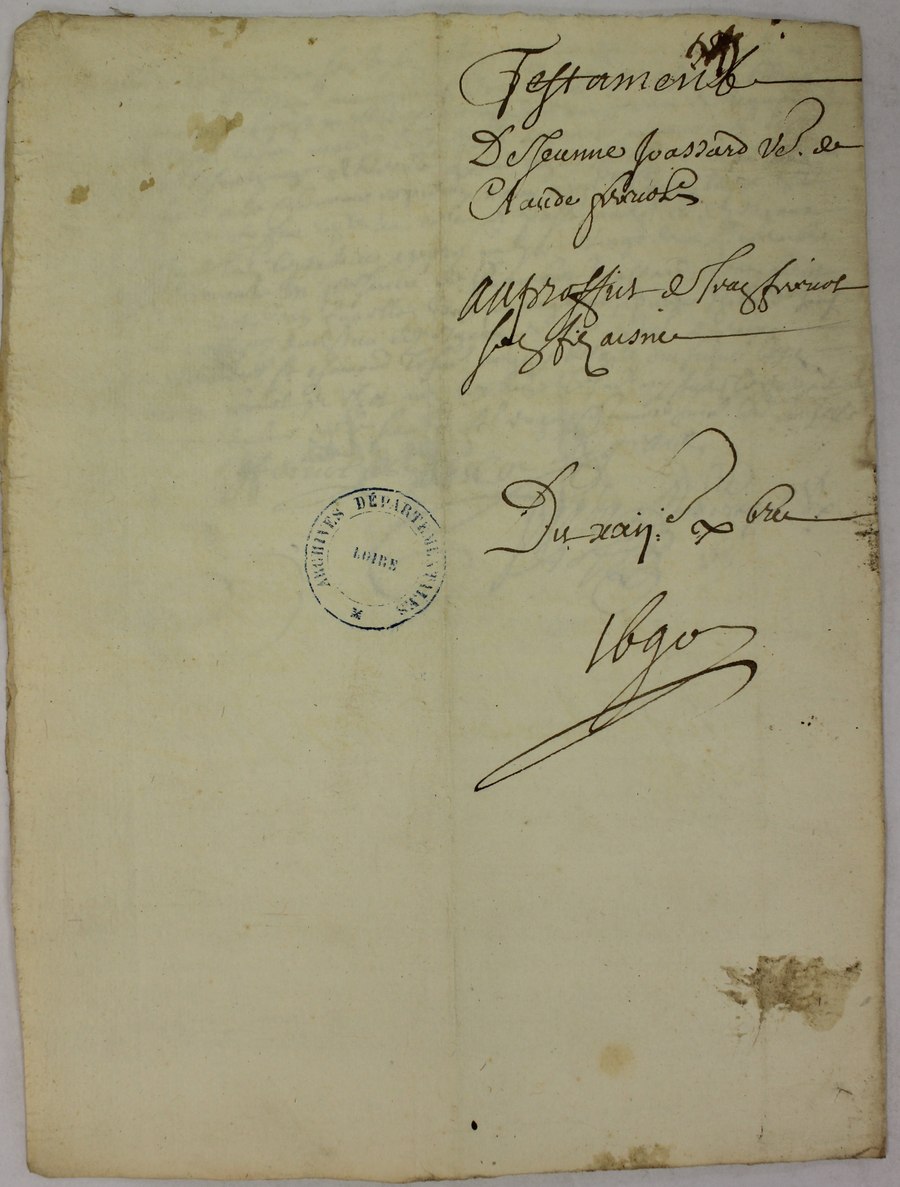 Testament
De Jeanne Joassard Ve. de
Claude
au proffit de
son filz aisne
Du xxij.e xbre
1690
ARCHIVES DÉPARTEMENTALES
LOIRE